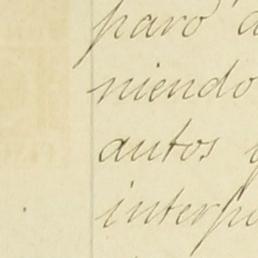 paró a
niendo
autos y
interpo